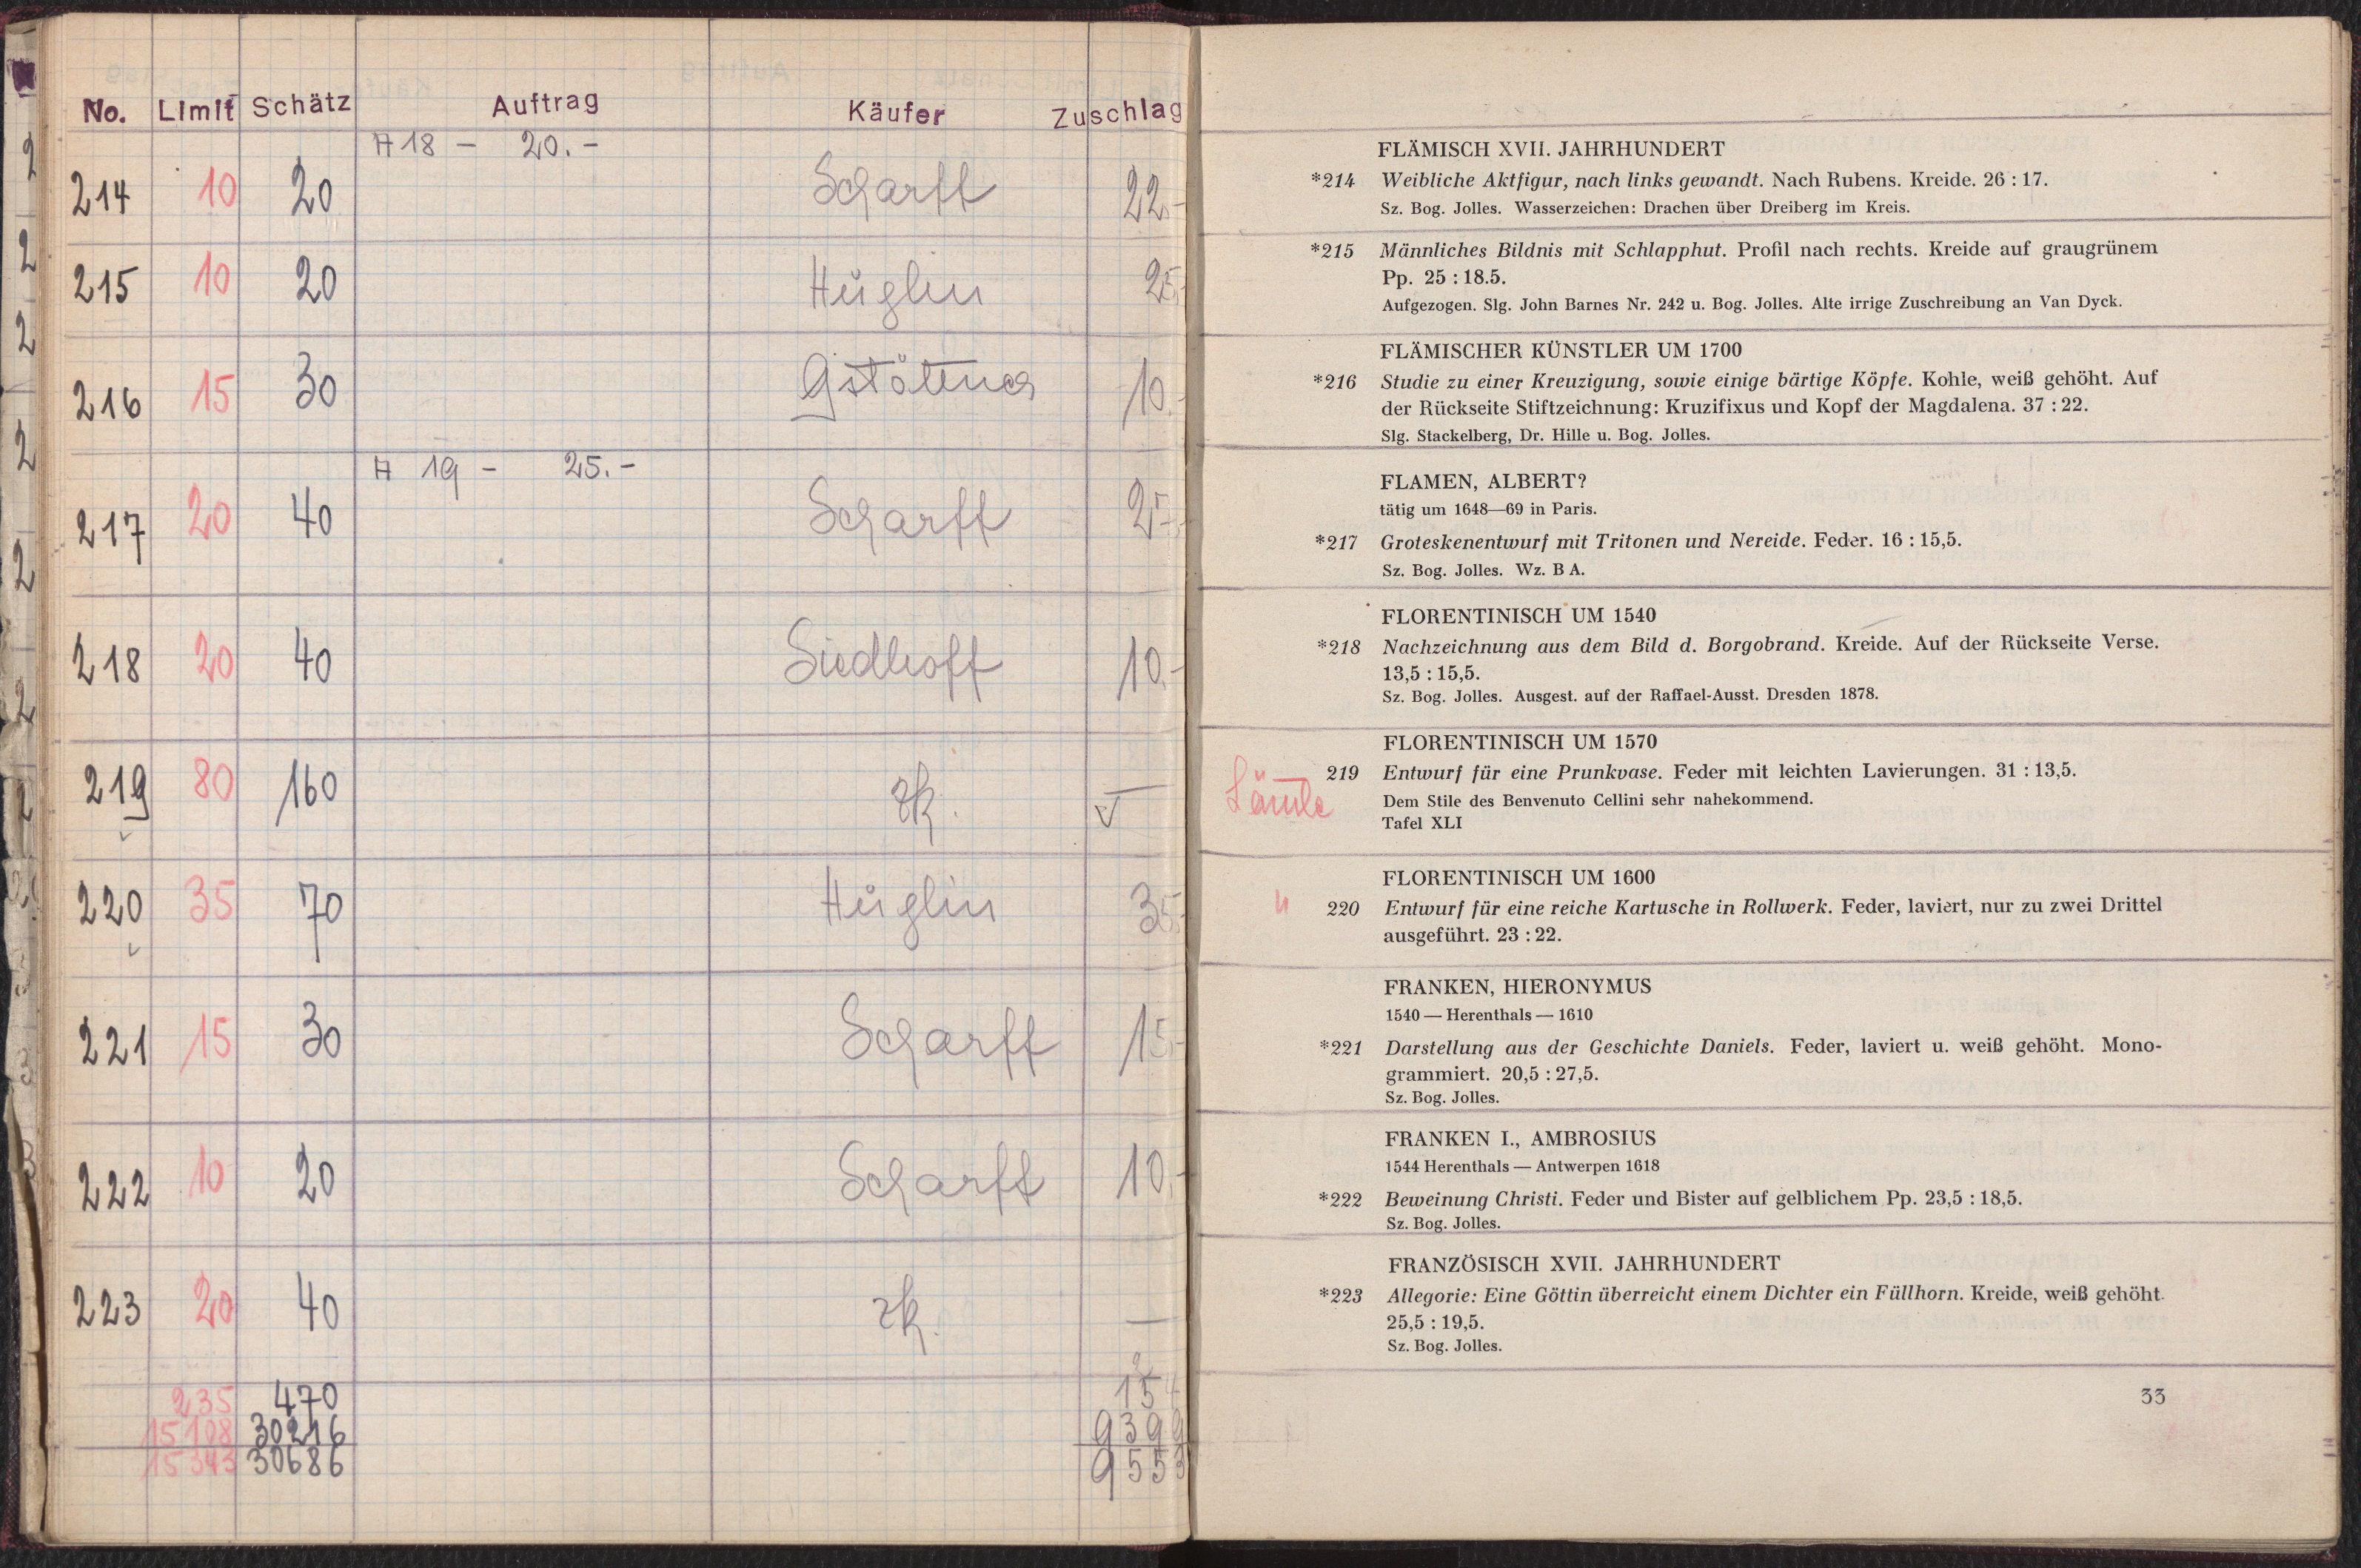 No. Limit Schätz Auftrag Käufer Zuschlag
A 18 – 20.–
214 10 20 Scharff 22.–
215 10 20 Hüglin 25.–
216 15 30 Gstöttner 10.–
A 19 – 25.–
217 20 40 Scharff 25.–
218 20 40 Siedhoff 10.–
219 80 160 zk. –
220 35 70 Hüglin 35.–
221 15 30 Scharff 15.–
222 10 20 Scharff 10.–
223 20 40 zk. —
235 470 15
15108 30216 9399
15343 30686 9553
FLÄMISCH XVII. JAHRHUNDERT
*214 Weibliche Aktfigur, nach links gewandt. Nach Rubens. Kreide. 26 : 17.
Sz. Bog. Jolles. Wasserzeichen: Drachen über Dreiberg im Kreis.
*215 Männliches Bildnis mit Schlapphut. Profil nach rechts. Kreide auf graugrünem
Pp. 25 : 18.5.
Aufgezogen. Slg. John Barnes Nr. 242 u. Bog. Jolles. Alte irrige Zuschreibung an Van Dyck.
FLÄMISCHER KÜNSTLER UM 1700
*216 Studie zu einer Kreuzigung, sowie einige bärtige Köpfe. Kohle, weiß gehöht. Auf
der Rückseite Stiftzeichnung: Kruzifixus und Kopf der Magdalena. 37 : 22.
Slg. Stackelberg, Dr. Hille u. Bog. Jolles.
FLAMEN, ALBERT?
tätig um 1648—69 in Paris.
*217 Groteskenentwurf mit Tritonen und Nereide. Feder. 16 : 15,5.
Sz. Bog. Jolles. Wz. B A.
FLORENTINISCH UM 1540
*218 Nachzeichnung aus dem Bild d. Borgobrand. Kreide. Auf der Rückseite Verse.
13,5 : 15,5.
Sz. Bog. Jolles. Ausgest. auf der Raffael-Ausst. Dresden 1878.
FLORENTINISCH UM 1570
219 Entwurf für eine Prunkvase. Feder mit leichten Lavierungen. 31 : 13,5.
Dem Stile des Benvenuto Cellini sehr nahekommend.
Tafel XLI
FLORENTINISCH UM 1600
" 220 Entwurf für eine reiche Kartusche in Rollwerk. Feder, laviert, nur zu zwei Drittel
ausgeführt. 23 : 22.
FRANKEN, HIERONYMUS
1540 — Herenthals — 1610
*221 Darstellung aus der Geschichte Daniels. Feder, laviert u. weiß gehöht. Mono-
grammiert. 20,5 : 27,5.
Sz. Bog. Jolles.
FRANKEN I., AMBROSIUS
1544 Herenthals — Antwerpen 1618
*222 Beweinung Christi. Feder und Bister auf gelblichem Pp. 23,5 : 18,5.
Sz. Bog. Jolles.
FRANZÖSISCH XVII. JAHRHUNDERT
*223 Allegorie: Eine Göttin überreicht einem Dichter ein Füllhorn. Kreide, weiß gehöht.
25,5 : 19,5.
Sz. Bog. Jolles.
33